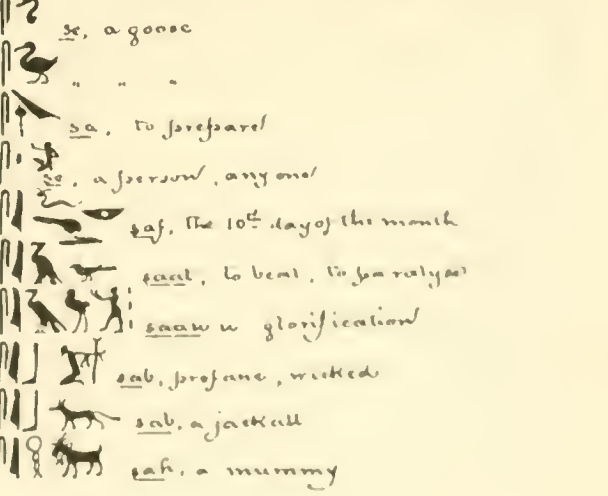 se, a goose
" " "
sa, to prepare
se, a person, any one
saf, the 10th day of the month
saat, to beat, to paralyse
saaw u glorification
sab, profane, wicked
sab, a jackall
sah, a mummy